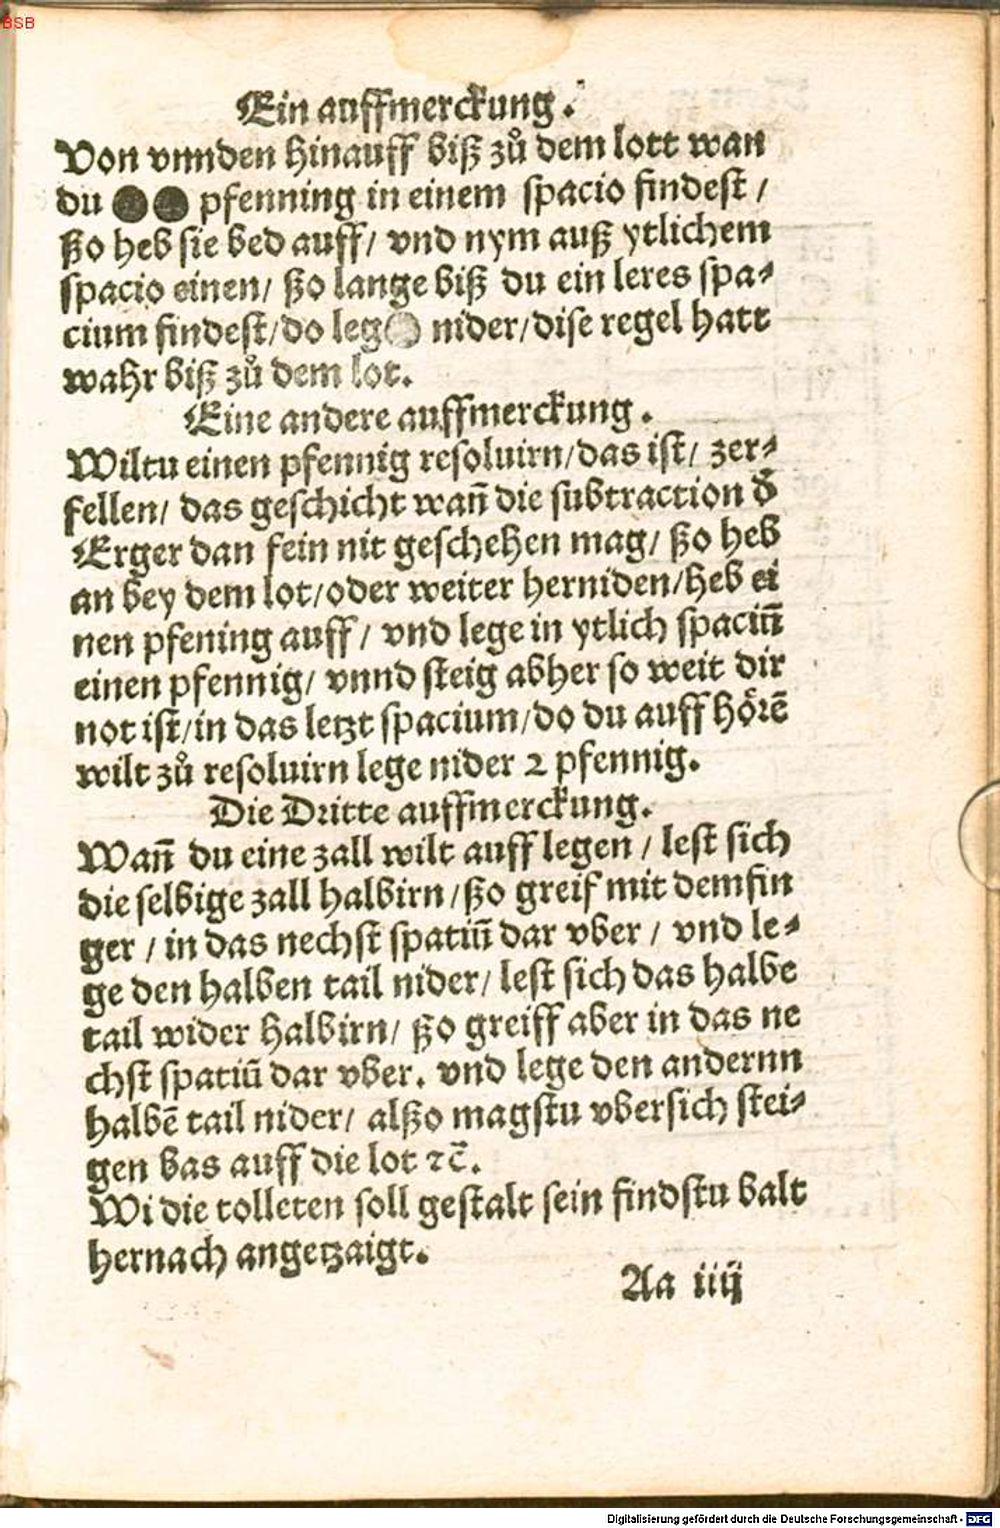 BSB
Ein auffmerckung.
Von vnnden hinauff biß zů dem lott wan
du ●● pfenning in einem spacio findest /
ßo heb sie bed auff/ vnd nym auß ytlichem
spacio einen/ ßo lange biß du ein leres spa⸗
cium findest/do leg● nider/dise regel hatt
wahr biß zů dem lot.
Eine andere auffmerckung.
Wiltu einen pfennig resoluirn/das ist/ zer⸗
fellen/ das geschicht wañ die subtraction ď
Erger dan fein nit geschehen mag/ ßo heb
an bey dem lot/oder weiter herniden/heb ei
nen pfening auff/ vnd lege in ytlich spaciũ
einen pfennig/ vnnd steig abher so weit dir
not ist/in das letzt spacium/do du auff hörẽ
wilt zů resoluirn lege nider 2 pfennig.
Die Dritte auffmerckung.
Wañ du eine zall wilt auff legen / lest sich
die selbige zall halbirn/ßo greif mit dem fin
ger / in das nechst spatiũ dar vber / vnd le⸗
ge den halben tail nider/ lest sich das halbe
tail wider halbirn/ ßo greiff aber in das ne
chst spatiũ dar vber. vnd lege den andernn
halbẽ tail nider/ alßo magstu vbersich stei⸗
gen bas auff die lot ⁊c̃.
Wi die tolleten soll gestalt sein findstu balt
hernach angetzaigt.
Aa iiij
Digitalisierung gefördert durch die Deutsche Forschungsgemeinschaft - DFG